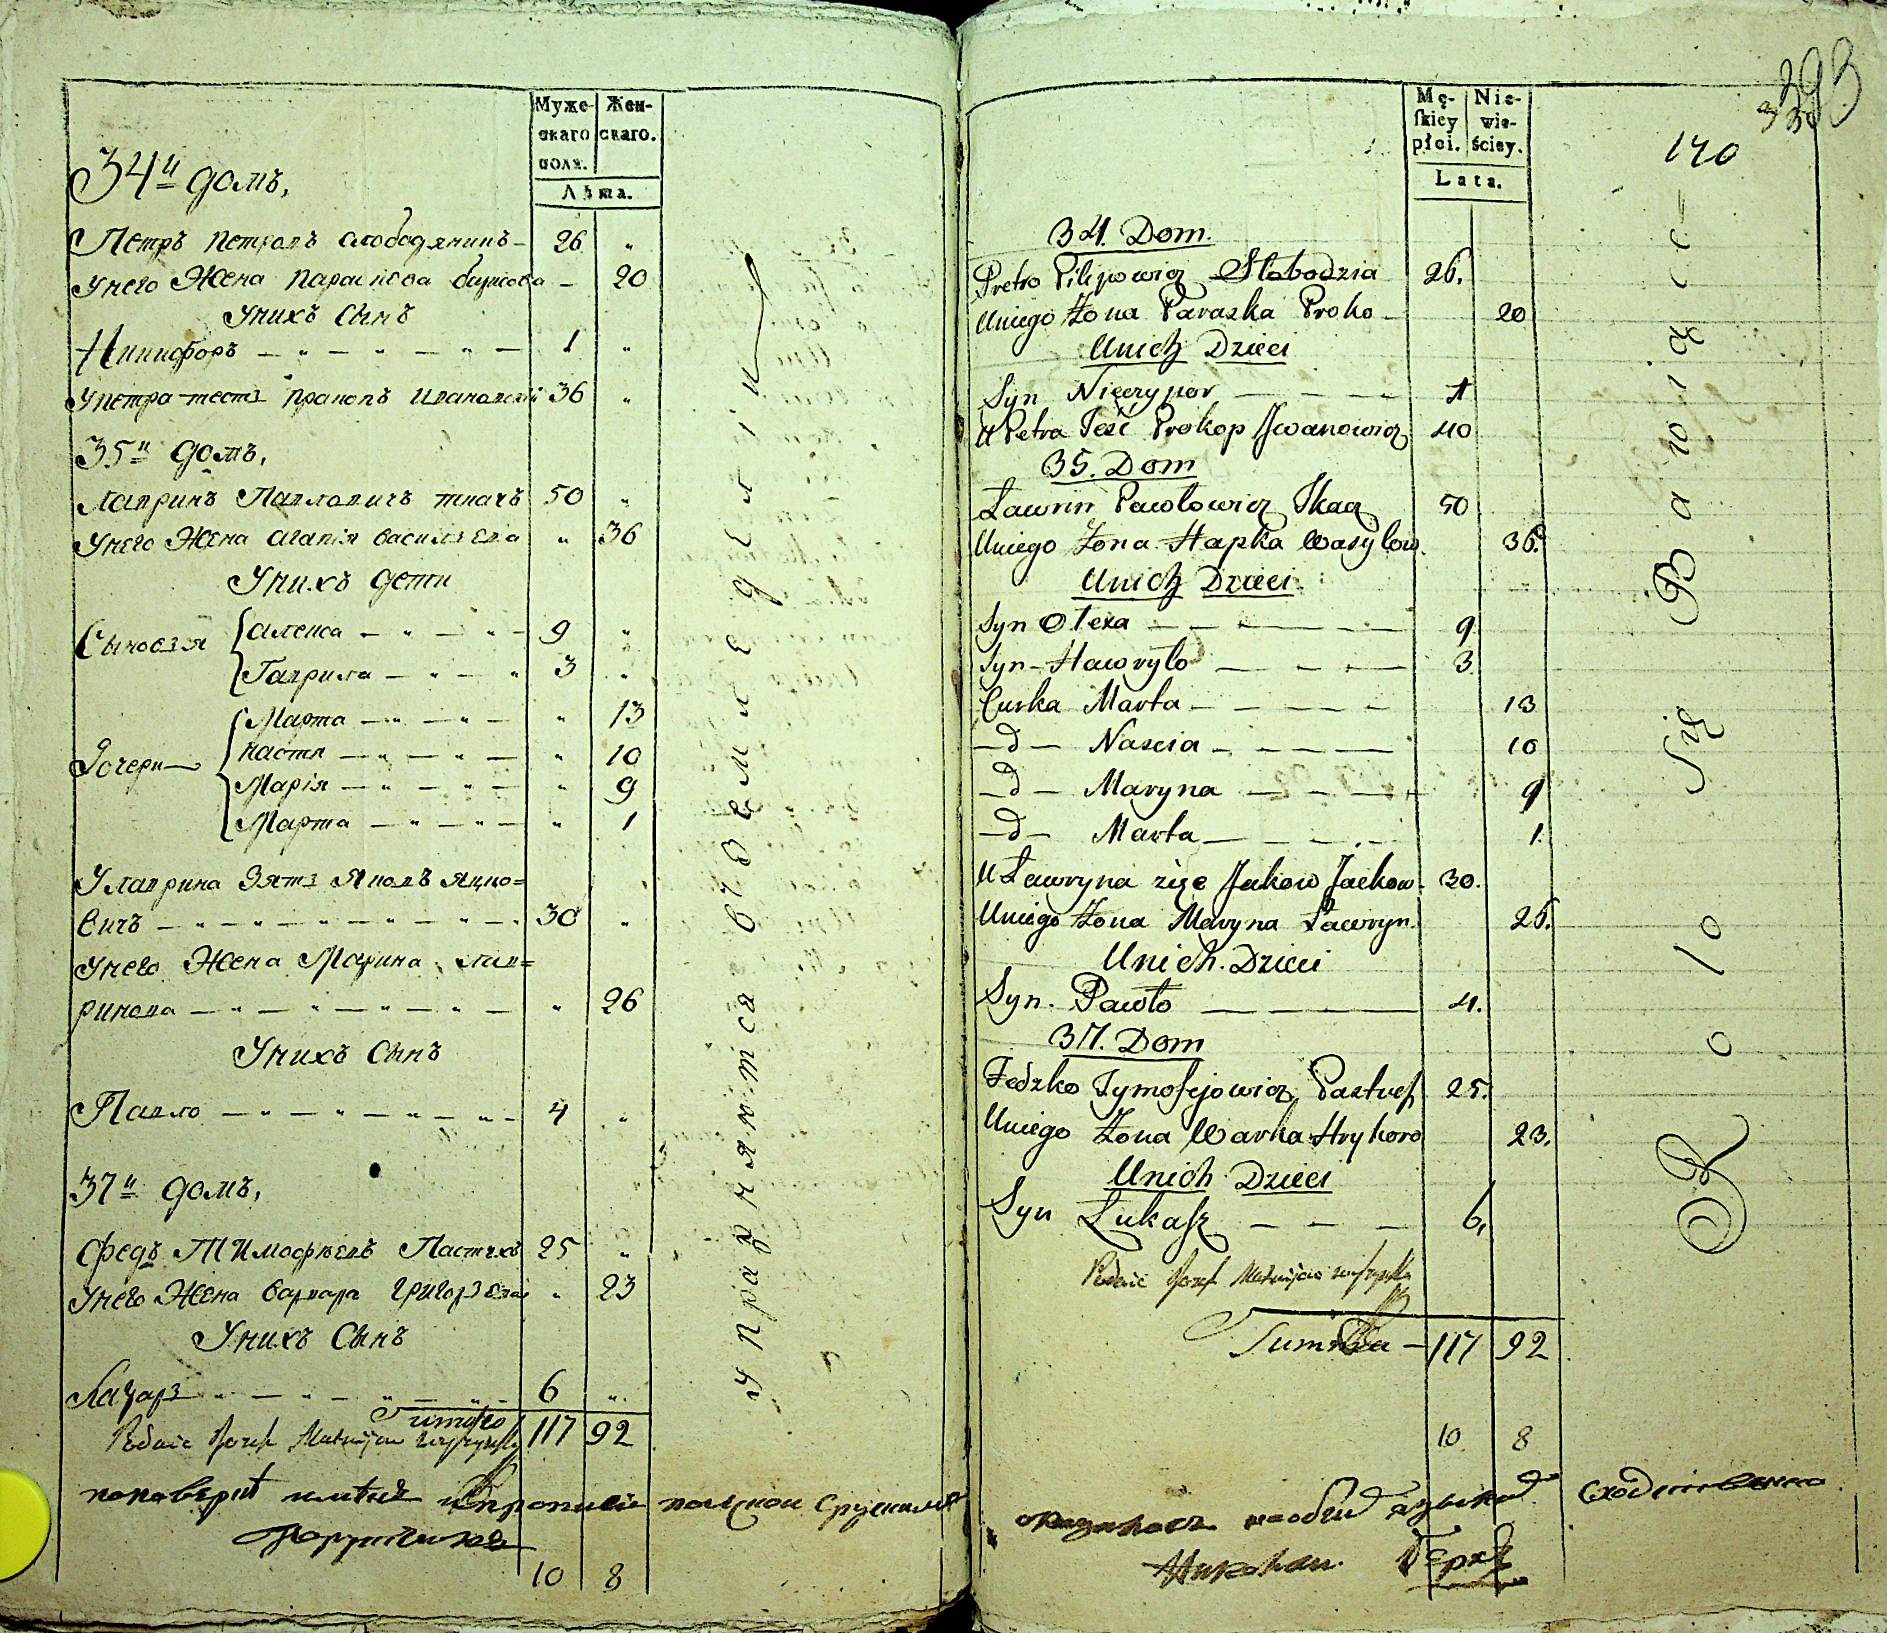 Муже-
скаго
полꙗ.
Жен-
скаго.
Лѣта.
34й домъ,
Петръ Петровъ слободянинъ – 26 „
Унего Жена Параскева – 20
Унихъ Сынъ
Никифоръ – „ – „ – „ – 1 „
Упетра тестъ Пракопъ Ивановъ 36 „
35й домъ,
Лавринъ Павловичъ ткачъ 50 „
Унего Жена Агапія василъева „ 36
Унихъ дети
Сыновъя
Алекса – „ – „ – 9 „
Гаврила – „ – „ 3 „
Дочери
Марта – „ – „ – „ 13
Настя – „ – „ – „ 10
Марія – „ – „ – „ 9
Марта – „ – „ – „ 1
Улаврина Зятъ Яковъ Яцко=
вичъ – „ – „ – „ – „ 30 „
Унего Жена Марина лав=
ринова – „ – „ – „ – „ – „ 26
Унихъ Сынъ
Павло – „ – „ – „ – „ – 4 „
37й домъ,
Федъ Тимофѣевъ Пастухъ 25 „
Унего Жена варвара григоръева „ 23
Унихъ Сынъ
Лазаръ „ – „ – „ – „ – 6 „
итого 117 92
10 8
УпразнянюТся въЗемлеДелiи
Mę-
ſkiey
płci.
Nie-
wie-
ściey.
Lata.
393
140
34. Dom.
Pretro Pilipowicz Słobodzia 26.
Uniego Żona Paraska Proko – 20
Unich Dzieci
Syn Nieczypor – – – – 1
U Petra Teść Prokop Jwanowicz 40
35. Dom
Ławrin Pawłowicz Tkacz 50
Uniego Żona Hapka Wasylow. 36.
Unich Dzieci
Syn Olexa – – – – 9
Syn – Hawryło – – – – 3
Curka Marta – – – – – 13
– d – Nascia – – – – – 10
– d – Maryna – – – – 9
– d – Marta – – – – 1.
U Ławryna zięc Jakow Jackow. 30.
Uniego Żona Maryna Ławryn. 26.
Unich. Dzieci
Syn. Pawło – – – – 4.
37. Dom
Fedzko Tymofejowicz Pastuch 25.
Uniego Żona Warka Hrykoro 23.
Unich Dzieci
Syn Łukasz – – – 6.
Summa – 117 92
10 8
Rolo Się Bawiący